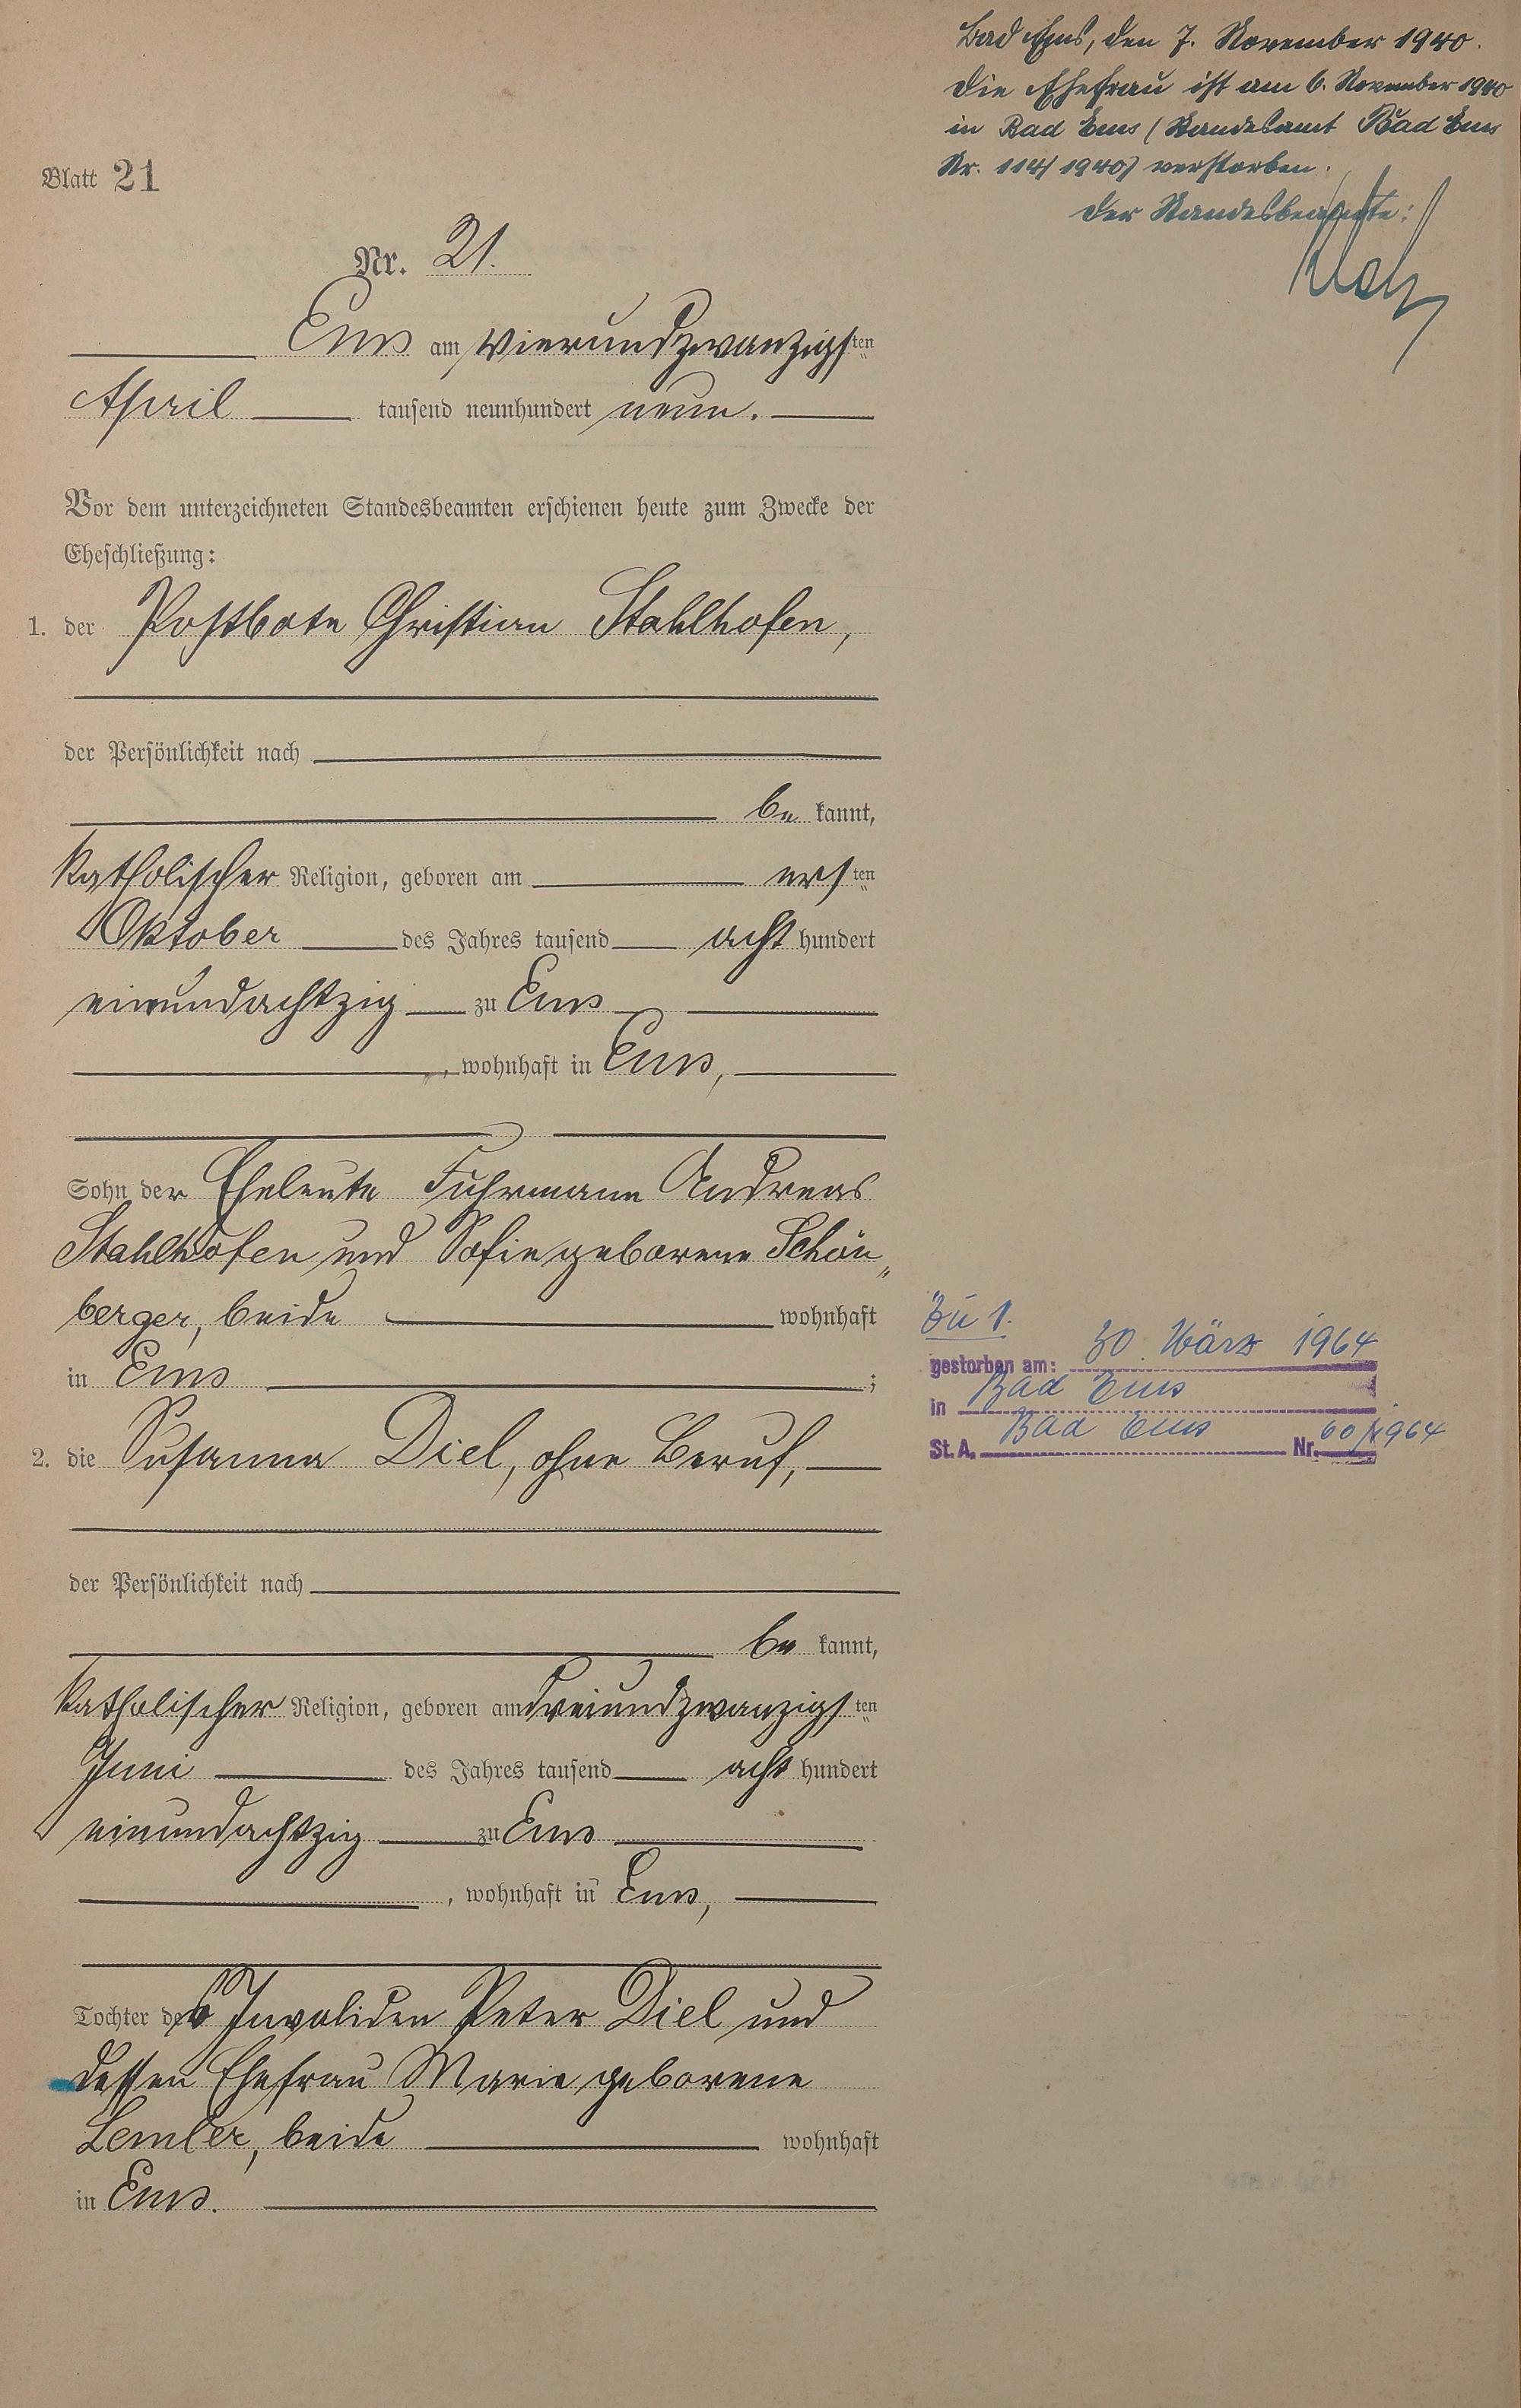 Blatt 21
Nr. 21.
Ems am vierundzwanzigsten
April tausend neunhundert neun.
Vor dem unterzeichneten Standesbeamten erschienen heute zum Zwecke der
Eheschließung:
1. der Postbote Christian Stahlhofen,
der Persönlichkeit nach
be kannt,
katholischer Religion, geboren am ersten
Oktober des Jahres tausend acht hundert
einundachtzig zu Ems
, wohnhaft in Ems,
Sohn der Eheleute Fuhrmann Andreas
Stahlhofen und Sofie geborene Schön„
berger, beide wohnhaft
in Ems ;
2. die Susanna Diel, ohne Beruf,
der Persönlichkeit nach
be kannt,
katholischer Religion, geboren am dreiundzwanzigsten
Juni des Jahres tausend acht hundert
einundachtzig zu Ems
, wohnhaft in Ems,
Tochter des Invaliden Peter Diel und
dessen Ehefrau Marie geborene
Lemler, beide wohnhaft
in Ems.
Bad Ems, den 7. November 1940.
Die Ehefrau ist am 6. November 1940
in Bad Ems (Standesamt Bad Ems
Nr. 114/1940) verstorben.
Der Standesbeamte:
Zu 1.
gestorben am: 30. März 1964
in Bad Ems
St. A. Bad Ems Nr. 60/1964